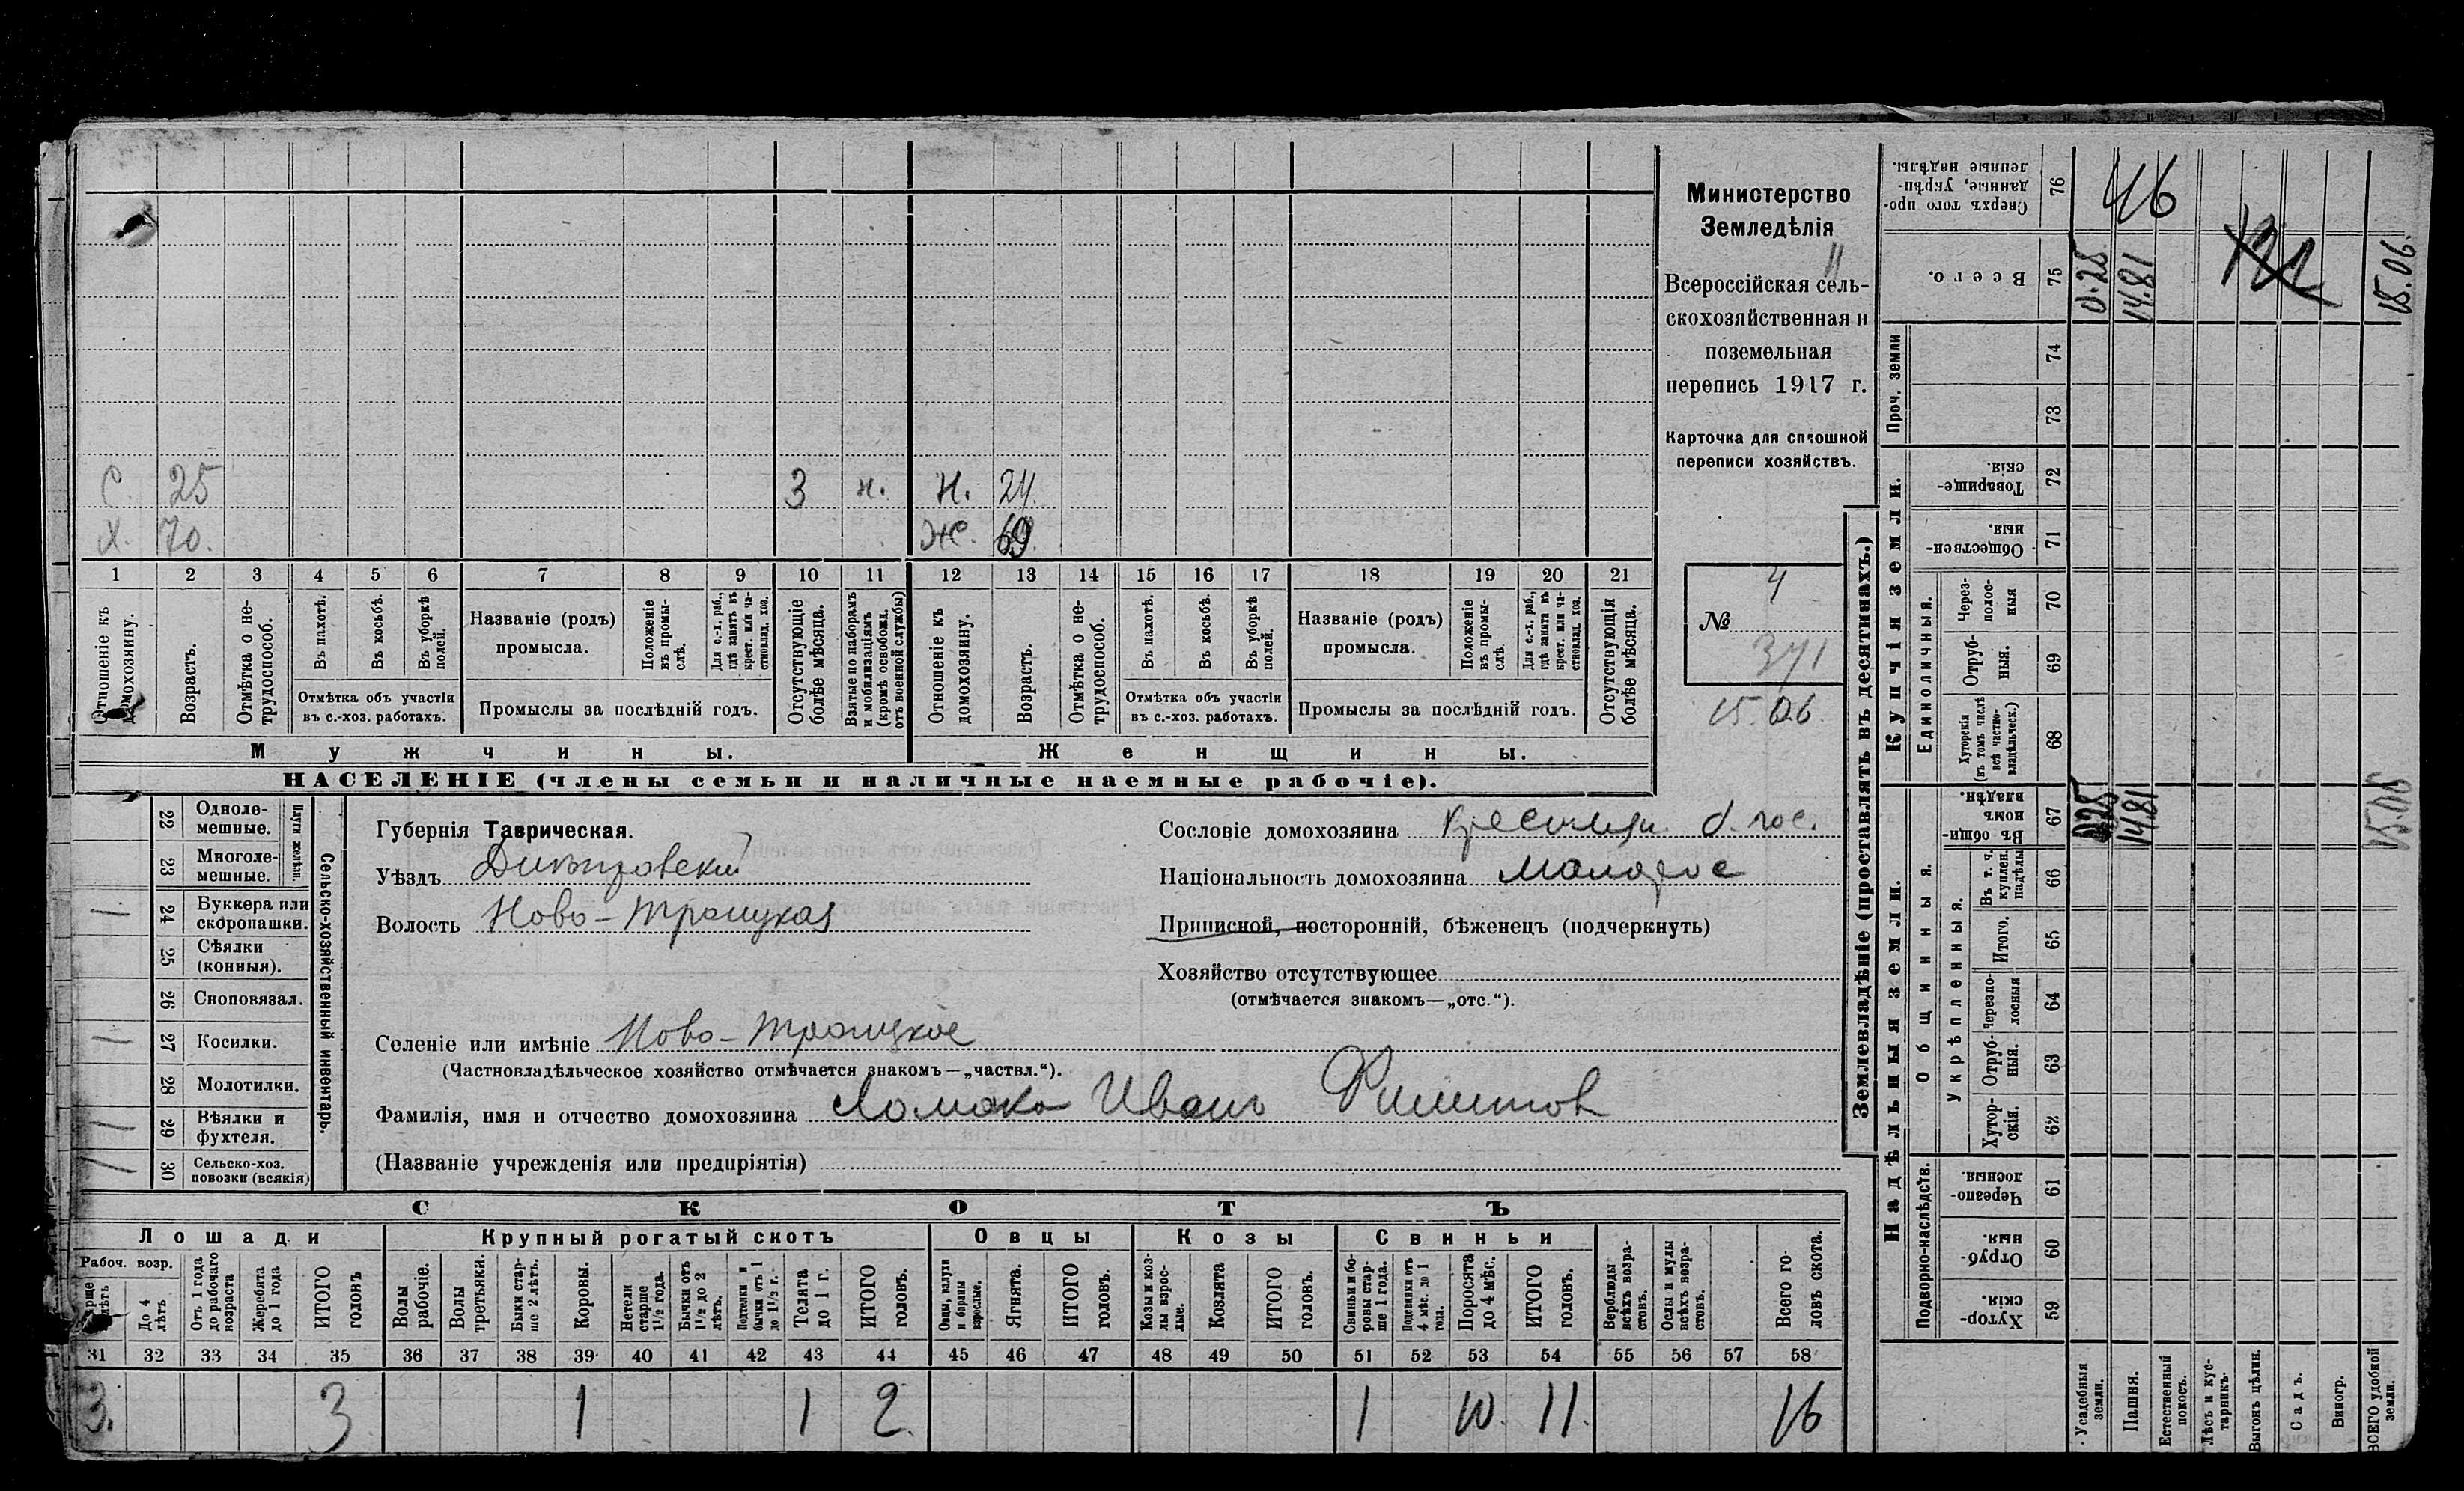 С. 25 3 н. Н. 24.
Х. 70. Ж. 69.
1 2 3 4 5 6 7 8 9 10 11 12 13 14 15 16 17 18 19 20 21
Отношеніе къ домохозяину.
Возрастъ.
Отмѣтка о не-
трудоспособ.
Въ пахотѣ.
Въ косьбѣ.
Въ уборкѣ
полей.
Отмѣтка объ участіи
въ с.-хоз. работахъ.
Названіе (родъ)
промысла.
Положеніе
въ промы-
слѣ.
Для с.-х. раб.,
гдѣ занятъ въ
крест. или ча-
стновлад. хоз.
Промыслы за послѣдній годъ.
Отсутствующіе
болѣе мѣсяца.
Взятые по наборамъ
и мобилизаціямъ
(кромѣ освобожд.
отъ военной службы)
Отношеніе къ
домохозяину.
Возрастъ.
Отмѣтка о не-
трудоспособ.
Въ пахотѣ.
Въ косьбѣ.
Въ уборкѣ
полей.
Отмѣтка объ участіи
въ с.-хоз. работахъ.
Названіе (родъ)
промысла.
Положеніе
въ промы-
слѣ.
Для с.-х. раб.,
гдѣ занята въ
крест. или ча-
стновлад. хоз.
Промыслы за послѣдній годъ.
Отсутствующія
болѣе мѣсяца.
Мужчины. Женщины.
НАСЕЛЕНІЕ (члены семьи и наличные наемные рабочіе).
Министерство
Земледѣлія
Всероссійская сель-
скохозяйственная и
поземельная
перепись 1917 г.
Карточка для сплошной
переписи хозяйствъ.
4
№
371
15.06
22 Одноле-
мешные.
23 Многоле-
мешные.
Плуги желѣзн.
24 Буккера или
скоропашки.
25 Сѣялки
(конныя).
26 Сноповязал.
27 Косилки.
28 Молотилки.
29 Вѣялки и
фухтеля.
30 Сельско-хоз.
повозки (всякія)
Сельско-хозяйственный инвентарь.
Губернія Таврическая.
Уѣздъ Днѣпровскій
Волость Ново-Троицкая
Сословіе домохозяина крестьян. б. гос.
Національность домохозяина малорос
Приписной, посторонній, бѣженецъ (подчеркнуть)
Хозяйство отсутствующее
(отмѣчается знакомъ—„отс.“).
Селеніе или имѣніе Ново-Троицкое
(Частновладѣльческое хозяйство отмѣчается знакомъ—„частвл.“).
Фамилія, имя и отчество домохозяина Ломако Иванъ Филиппов
(Названіе учрежденія или предпріятія)
СКОТЪ
Лошади Крупный рогатый скотъ Овцы Козы Свиньи
Рабоч. возр.
До 4
лѣтъ
Отъ 1 года
до рабочаго
возраста
Жеребята
до 1 года
ИТОГО
головъ
Волы
рабочіе.
Волы
третьяки.
Быки стар-
ше 2 лѣтъ.
Коровы.
Нетели
старше
1½ года.
Бычки отъ
1½ до 2
лѣтъ.
Подтелки и
бычки отъ 1
до 1½ г.
Телята
до 1 г.
ИТОГО
головъ.
Овцы, валухи
и бараны
взрослые.
Ягнята.
ИТОГО
головъ.
Козы и коз-
лы взрос-
лые.
Козлята
ИТОГО
головъ.
Свиньи и бо-
ровы стар-
ше 1 года.
Подсвинки отъ
4 мѣс. до 1
года.
Поросята
до 4 мѣс.
ИТОГО
головъ.
Верблюды
всѣхъ возра-
стовъ.
Ослы и мулы
всѣхъ возра-
стовъ.
Всего го-
ловъ скота.
31 32 33 34 35 36 37 38 39 40 41 42 43 44 45 46 47 48 49 50 51 52 53 54 55 56 57 58
3. 3 1 1 2. 1 10. 11. 16
Землевладѣніе (проставлять въ десятинахъ.)
Надѣльныя земли. Купчія земли.
Проч. земли
Подворно-наслѣдств.
Общинныя.
Укрѣпленныя.
Единоличныя.
Сверхъ того про-
данные, укрѣп-
ленные надѣлы. 76 46
Всего. 75 0.25 14.81 15.06.
74
73
Товарище-
скія. 72
Обществен-
ныя. 71
Через-
полос-
ныя 70
Отруб-
ныя. 69
Хуторскія
(въ томъ числѣ
всѣ частно-
владѣльческ.) 68
Въ общин-
номъ
владѣн. 67 0.25 14.81 15.06
Въ т. ч.
куплен.
надѣлы 66
Итого. 65
Черезпо-
лосныя 64
Отруб-
ныя. 63
Хутор-
скія. 62
Черезпо-
лосныя 61
Отруб-
ныя. 60
Хутор-
скія. 59
Усадебныя
земли.
Пашня.
Естественный
покосъ.
Лѣсъ и кус-
тарникъ.
Выгонъ цѣлин.
Садъ.
Виногр.
ВСЕГО удобной
земли.